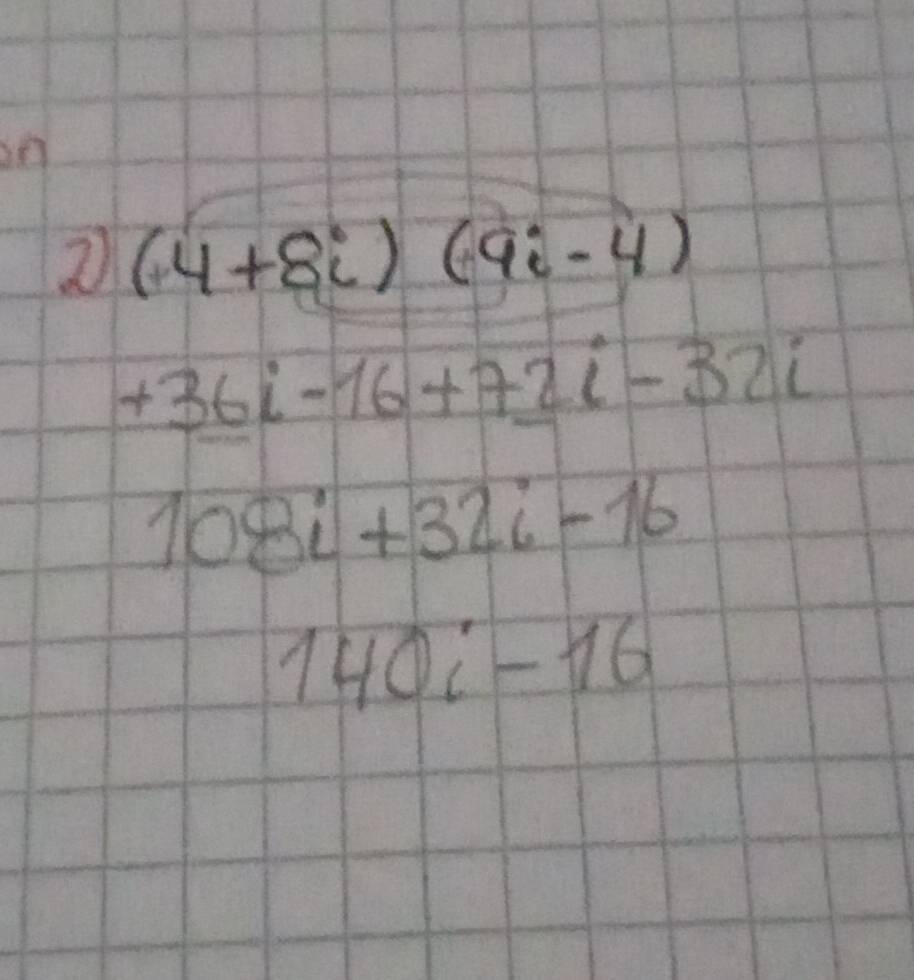 on
2) (4+8i) (9i-4)
+36i-16+72i-32i
108i+32i-16
140i-16